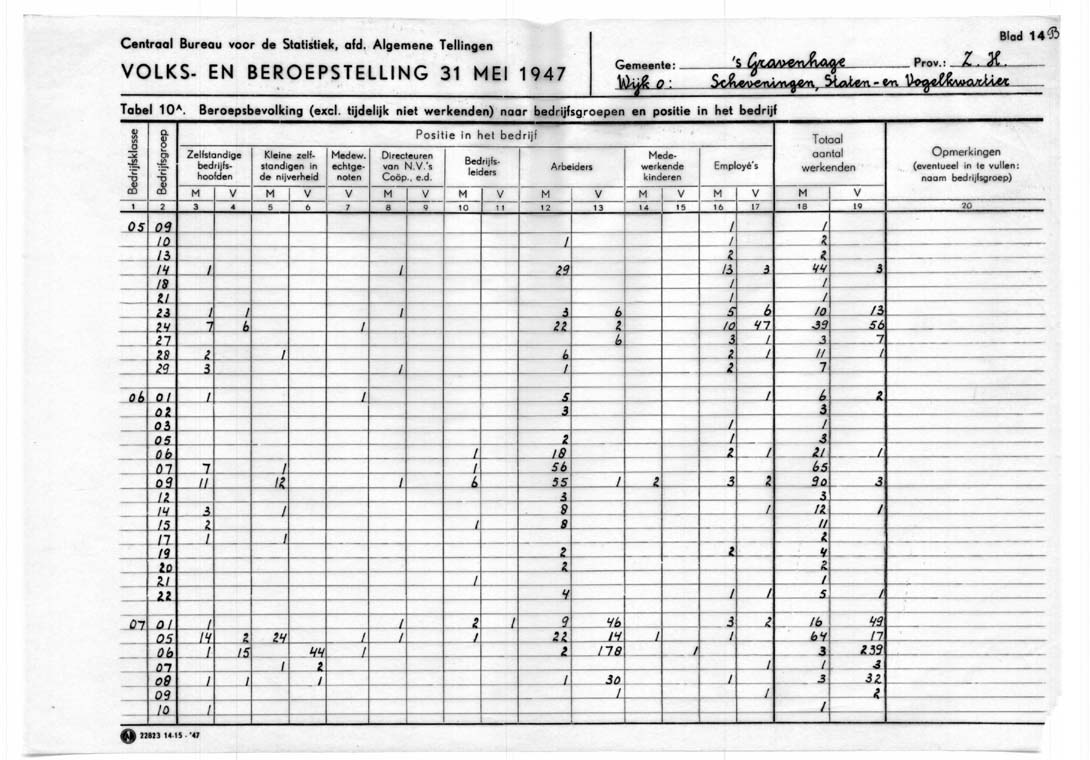 Blad 14 B
Centraal Bureau voor de Statistiek, afd. Algemene Tellingen
VOLKS- EN BEROEPSTELLING 31 MEI 1947
Gemeente: 's Gravenhage Prov.: Z. H.
Wijk o: Scheveningen, Staten- en Vogelkwartier
Tabel 10^. Beroepsbevolking (excl. tijdelijk niet werkenden) naar bedrijfsgroepen en positie in het bedrijf
Bedrijfsklasse
Bedrijfsgroep
Positie in het bedrijf
Zelfstandige bedrijfs- hoofden
Kleine zelf- standigen in de nijverheid
Medew. echtge- noten
Directeuren van N.V.'s Coöp., e.d.
Bedrijfs- leiders
Arbeiders
Mede- werkende kinderen
Employé's
Totaal aantal werkenden
Opmerkingen (eventueel in te vullen: naam bedrijfsgroep)
M V M V V M V M V M V M V M V M V
1 2 3 4 5 6 7 8 9 10 11 12 13 14 15 16 17 18 19 20
05 09 1 1
10 1 1 2
13 2 2
14 1 1 29 13 3 44 3
18 1 1
21 1 1
23 1 1 1 3 6 5 6 10 13
24 7 6 1 22 2 10 47 39 56
27 6 3 1 3 7
28 2 1 6 2 1 11 1
29 3 1 1 2 7
06 01 1 1 5 1 6 2
02 3 3
03 1 1
05 2 1 3
06 1 18 2 1 21 1
07 7 1 1 56 65
09 11 12 1 6 55 1 2 3 2 90 3
12 3 3
14 3 1 8 1 12 1
15 2 1 8 11
17 1 1 2
19 2 2 4
20 2 2
21 1 1
22 4 1 1 5 1
07 01 1 1 2 1 9 46 3 2 16 49
05 14 2 24 1 1 1 22 14 1 1 64 17
06 1 15 44 1 2 178 1 3 239
07 1 2 1 1 3
08 1 1 1 1 30 1 3 32
09 1 1 2
10 1 1
22823 14-15 - '47